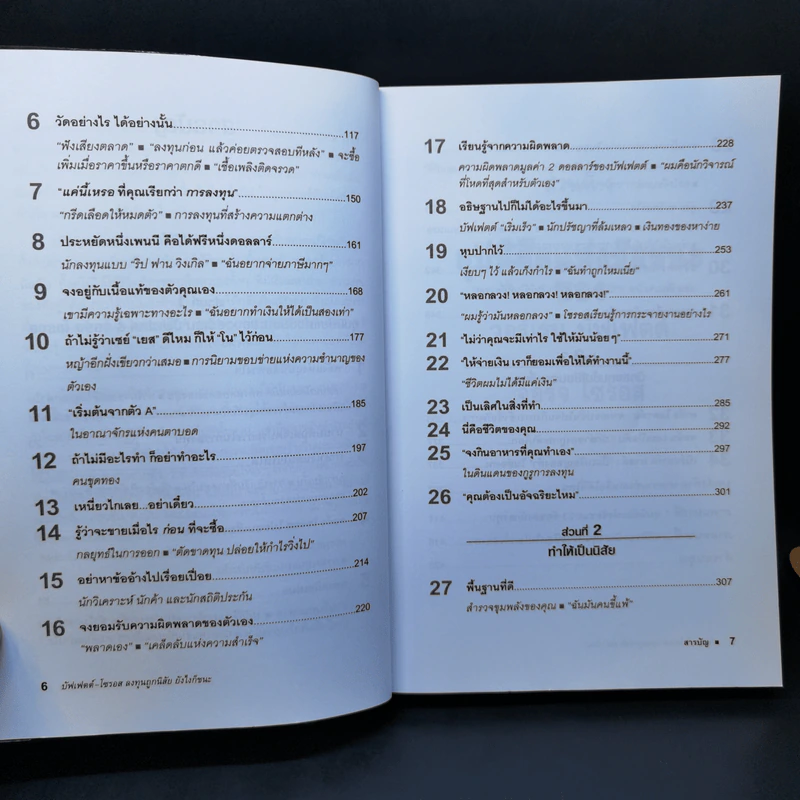 6 วัดอย่างไร ได้อย่างนั้น....................117
“ฟังเสียงตลาด” ■ “ลงทุนก่อน แล้วค่อยตรวจสอบทีหลัง” ■ จะซื้อ
เพิ่มเมื่อราคาขึ้นหรือราคาตกดี ■ “เชื้อเพลิงติดจรวด”
7 “แค่นี้เหรอ ที่คุณเรียกว่า การลงทุน”....................150
“กรีดเลือดให้หมดตัว” ■ การลงทุนที่สร้างความแตกต่าง
8 ประหยัดหนึ่งเพนนี คือได้ฟรีหนึ่งดอลลาร์....................161
นักลงทุนแบบ “ริป ฟาน วิงเกิล” ■ “ฉันอยากจ่ายภาษีมากๆ”
9 จงอยู่กับเนื้อแท้ของตัวคุณเอง....................168
เขามีความรู้เฉพาะทางอะไร ■ “ฉันอยากทำเงินให้ได้เป็นสองเท่า”
10 ถ้าไม่รู้ว่าเซย์ “เยส” ดีไหม ก็ให้ “โน” ไว้ก่อน....................177
หญ้าอีกฝั่งเขียวกว่าเสมอ ■ การนิยามขอบข่ายแห่งความชำนาญของ
ตัวเอง
11 “เริ่มต้นจากตัว A”....................185
ในอาณาจักรแห่งคนตาบอด
12 ถ้าไม่มีอะไรทำ ก็อย่าทำอะไร....................197
คนขุดทอง
13 เหนี่ยวไกเลย...อย่าเดี๋ยว....................202
14 รู้ว่าจะขายเมื่อไร ก่อน ที่จะซื้อ....................207
กลยุทธ์ในการออก ■ “ตัดขาดทุน ปล่อยให้กำไรวิ่งไป”
15 อย่าหาข้ออ้างไปเรื่อยเปื่อย....................214
นักวิเคราะห์ นักค้า และนักสถิติประกัน
16 จงยอมรับความผิดพลาดของตัวเอง....................220
“พลาดเอง” ■ “เคล็ดลับแห่งความสำเร็จ”
6 บัฟเฟตต์–โซรอส ลงทุนถูกนิสัย ยังไงก็ชนะ
17 เรียนรู้จากความผิดพลาด....................228
ความผิดพลาดมูลค่า 2 ดอลลาร์ของบัฟเฟตต์ ■ “ผมคือนักวิจารณ์
ที่โหดที่สุดสำหรับตัวเอง”
18 อธิษฐานไปก็ไม่ได้อะไรขึ้นมา....................237
บัฟเฟตต์ “เริ่มเร็ว” ■ นักปรัชญาที่ล้มเหลว ■ เงินทองของหาง่าย
19 หุบปากไว้....................253
เงียบๆ ไว้ แล้วเก็งกำไร ■ “ฉันทำถูกไหมเนี่ย”
20 “หลอกลวง! หลอกลวง! หลอกลวง!”....................261
“ผมรู้ว่ามันหลอกลวง” ■ โซรอสเรียนรู้การกระจายงานอย่างไร
21 “ไม่ว่าคุณจะมีเท่าไร ใช้ให้มันน้อยๆ”....................271
22 “ให้จ่ายเงิน เราก็ยอมเพื่อให้ได้ทำงานนี้”....................277
“ชีวิตผมไม่ได้มีแค่เงิน”
23 เป็นเลิศในสิ่งที่ทำ....................285
24 นี่คือชีวิตของคุณ....................292
25 “จงกินอาหารที่คุณทำเอง”....................297
ในดินแดนของกูรูการลงทุน
26 “คุณต้องเป็นอัจฉริยะไหม”....................301
ส่วนที่ 2
ทำให้เป็นนิสัย
27 พื้นฐานที่ดี....................307
สำรวจขุมพลังของคุณ ■ “ฉันมันคนขี้แพ้”
สารบัญ ■ 7